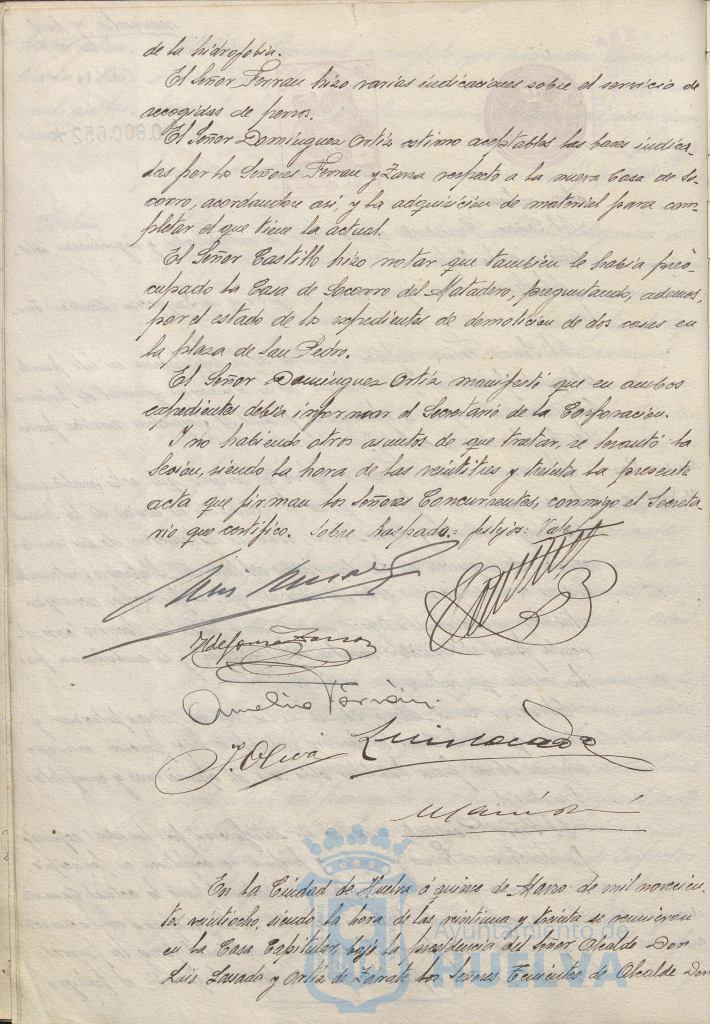 de la hidrofobia.
El Señor Ferran hizo varias indicaciones sobre el servicio de
recogidas de perros.
El Señor Domínguez Ortiz estimo aceptables las bases indica-
das por los Señores Ferran y Zarza respecto a la nueva Casa de So-
corro, acordandose asi, y la adquisicion de material para com-
pletar el que tiene la actual.
El Señor Castillo hizo notar que tambien le habia preo-
cupado la Casa de Socorro del Matadero, preguntando, ademas,
por el estado de los expedientes de demolicion de dos casas en
la plaza de San Pedro.
El Señor Domínguez Ortiz manifestó que en ambos
expedientes debia informar el Secretario de la Corporacion.
Y no habiendo otros asuntos de que tratar, se levantó la
Sesion, siendo la hora de las veintitres y treinta la presente
acta que firman los Señores Concurrentes, conmigo el Secreta-
rio que certifico. Sobre Raspado = festejos = Vale
Amelio Ferrán
J. Oliva
En la Ciudad de Huelva á quince de Marzo de mil novecien-
tos veintiocho, siendo la hora de las veintiuna y treinta se reunieron
en la Casa Capitular, bajo la presidencia del Señor Alcalde Don
Luis Losada y Ortiz de Zárate los Señores Tenientes de Alcalde Don
Ayuntamiento de
HUELVA